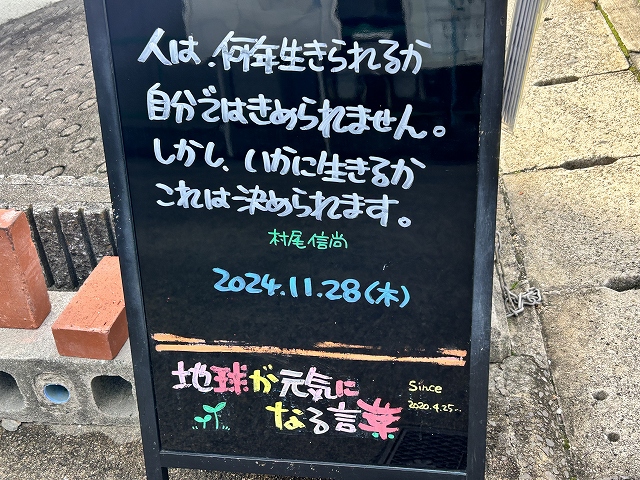 人は、何年生きられるか
自分ではきめられません。
しかし、いかに生きるか
これは決められます。
村尾信尚
2024.11.28(木)
地球が元気に
なる言葉
Since
2020.4.25~